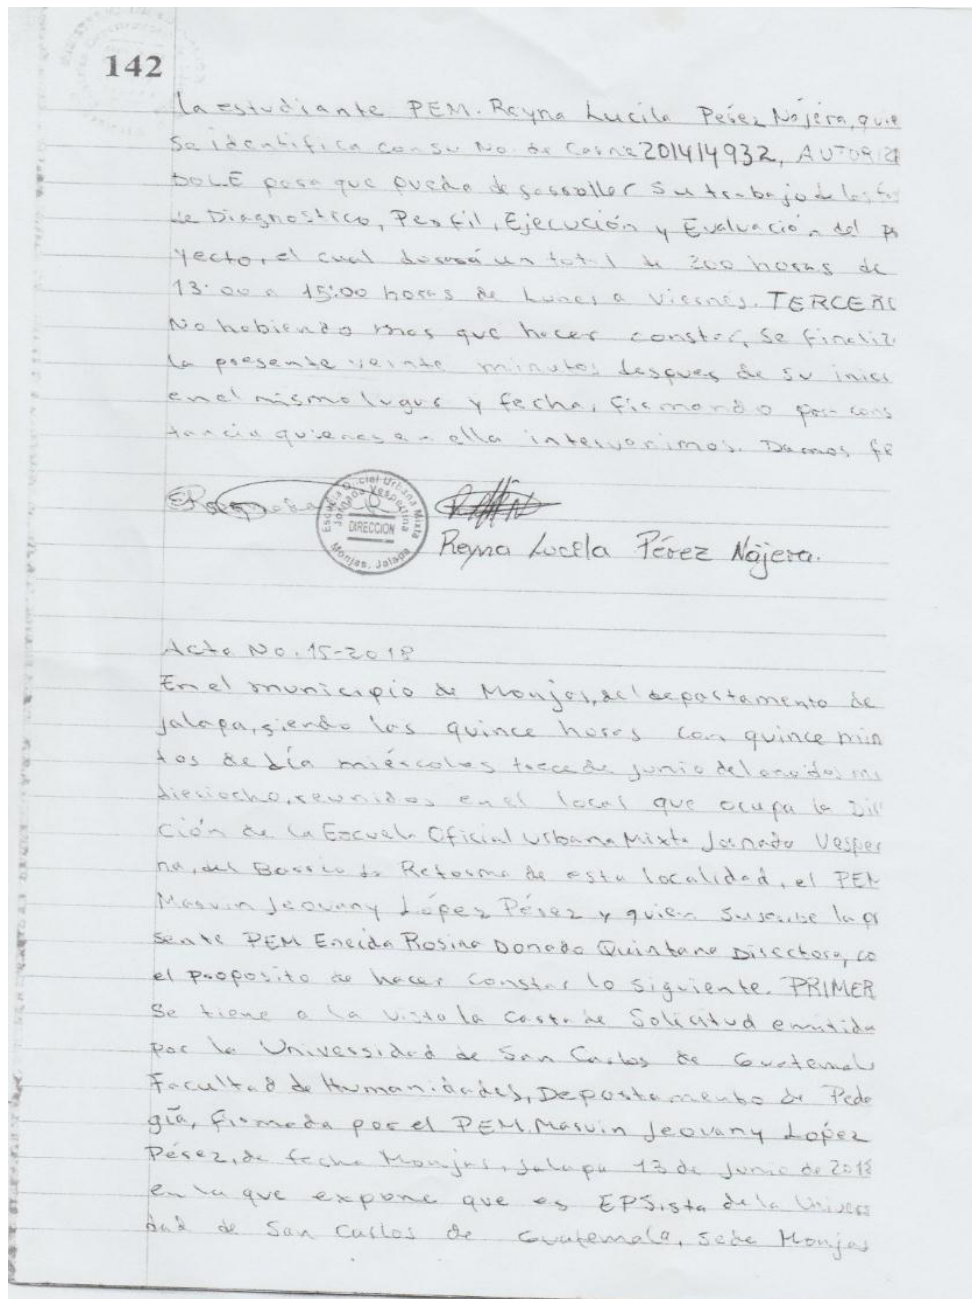 142
La estudiante PEM. Reyna Lucila Pérez Nájera, que
se identifica con su No. de Carné 201414932, AUTORIZA
DOLE para que pueda desarrollar su trabajo de las
de Diagnostico, Perfil, Ejecución y Evaluación del
yecto, el cual durará un total de 200 horas de
13:00 a 15:00 horas de Lunes a Viernes. TERCERO
No habiendo mas que hacer constar, se finaliz
la presente veinte minutos despues de su inici
en el mismo lugar y fecha, firmando para cons
tancia quienes en ella intervenimos. Damos fé
Escuela Oficial Urbana Mixta
Jornada Vespertina
DIRECCION
Monjas, Jalapa
Reyna Lucila Pérez Nájera.
Acta No. 15-2018
En el municipio de Monjas, del departamento de
Jalapa, siendo las quince horas con quince min
tos del día miércoles trece de junio del año dos mi
dieciocho, reunidos en el local que ocupa la Dir
ción de la Escuela Oficial Urbana Mixta Jornada Vesper
na, del Barrio la Reforma de esta localidad, el PEM
Marvin Jeovany López Pérez y quien suscribe la pr
sente PEM Eneida Rosina Donado Quintana Directora, co
el proposito de hacer constar lo siguiente. PRIMER
Se tiene a la vista la carta de Solicitud emitida
por la Universidad de San Carlos de Guatemal
Facultad de Humanidades, Departamento de Peda
gía, firmada por el PEM Marvin Jeovany López
Pérez, de fecha Monjas, Jalapa 13 de junio de 2018
en la que expone que es EPSista de la Univers
dad de San Carlos de Guatemala, sede Monjas